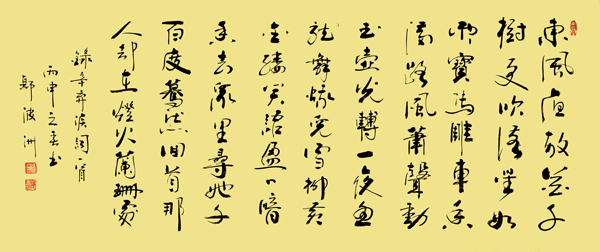 東風夜放花千
樹更吹落星如
雨寶馬雕車香
滿路風簫聲動
玉壺光轉一夜魚
龍舞蛾兒雪柳黃
金縷笑語盈々暗
香去眾里尋她千
百度驀然回首那
人却在燈火蘭珊處
錄辛弃疾詞一首
丙申之春書
鄭波洲